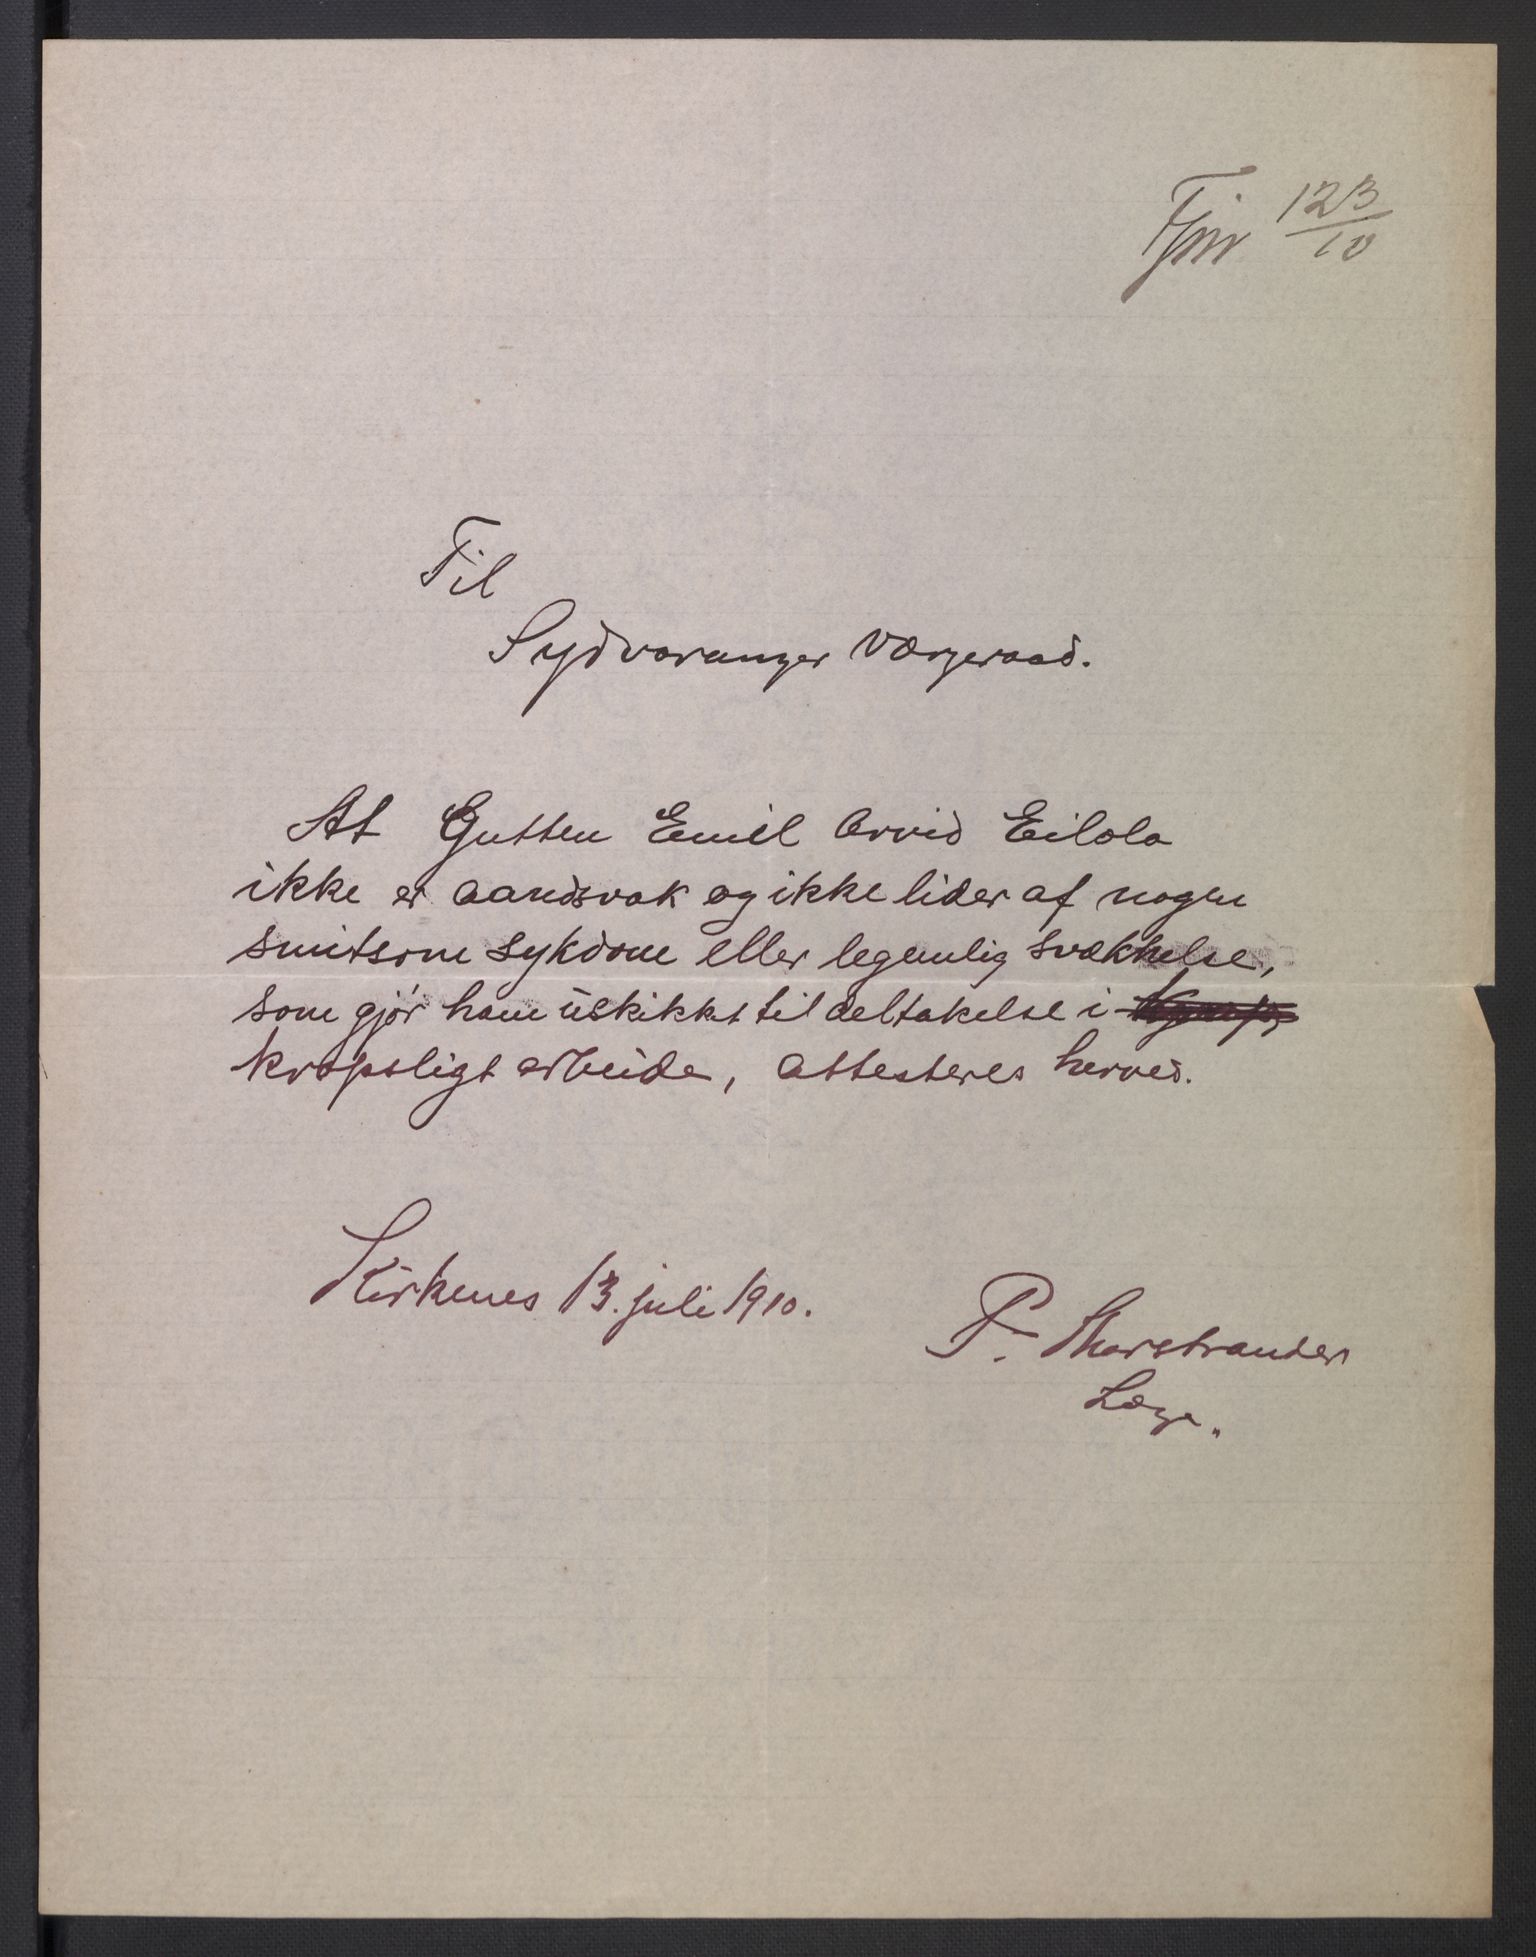 123
10
Til
Sydvaranger Værgeraad.
At Gutten Emil Arvid Eilola
ikke er aandsvak og ikke lider af nogen
smitsom sykdom eller legemlig svækkelse,
som gjör ham uskikket til deltakelse i
kropsligt arbeide, attesteres herved.
Kirkenes 13. juli 1910.
P. Marstrander
Læge.